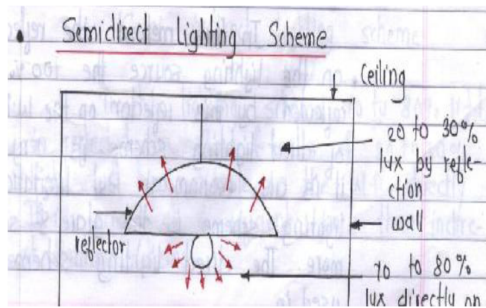 Semidirect Lighting Scheme
ceiling
20 to 30%
lux by refle-
ction
wall
reflector
70 to 80%
lux directly on